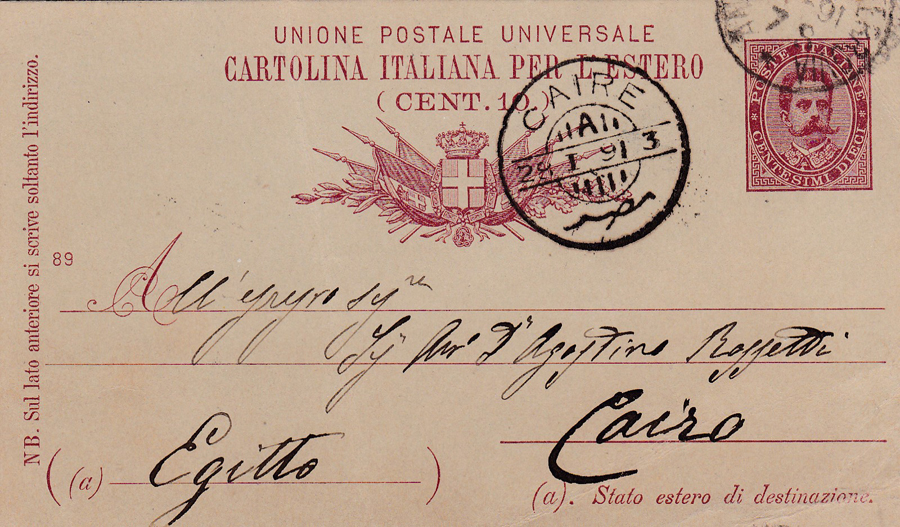 UNIONE POSTALE UNIVERSALE
CARTOLINA ITALIANA PER L'ESTERO
(CENT. 10.)
POSTE ITALIANE
CENTESIMI DIECI
CAIRE
A
28 I 91 3
مصر
NB. Sul lato anteriore si scrive soltanto l'indirizzo.
89
All'
Sig Avv D'Agostino Rossetti
Cairo
(a) Egitto )
(a). Stato estero di destinazione.